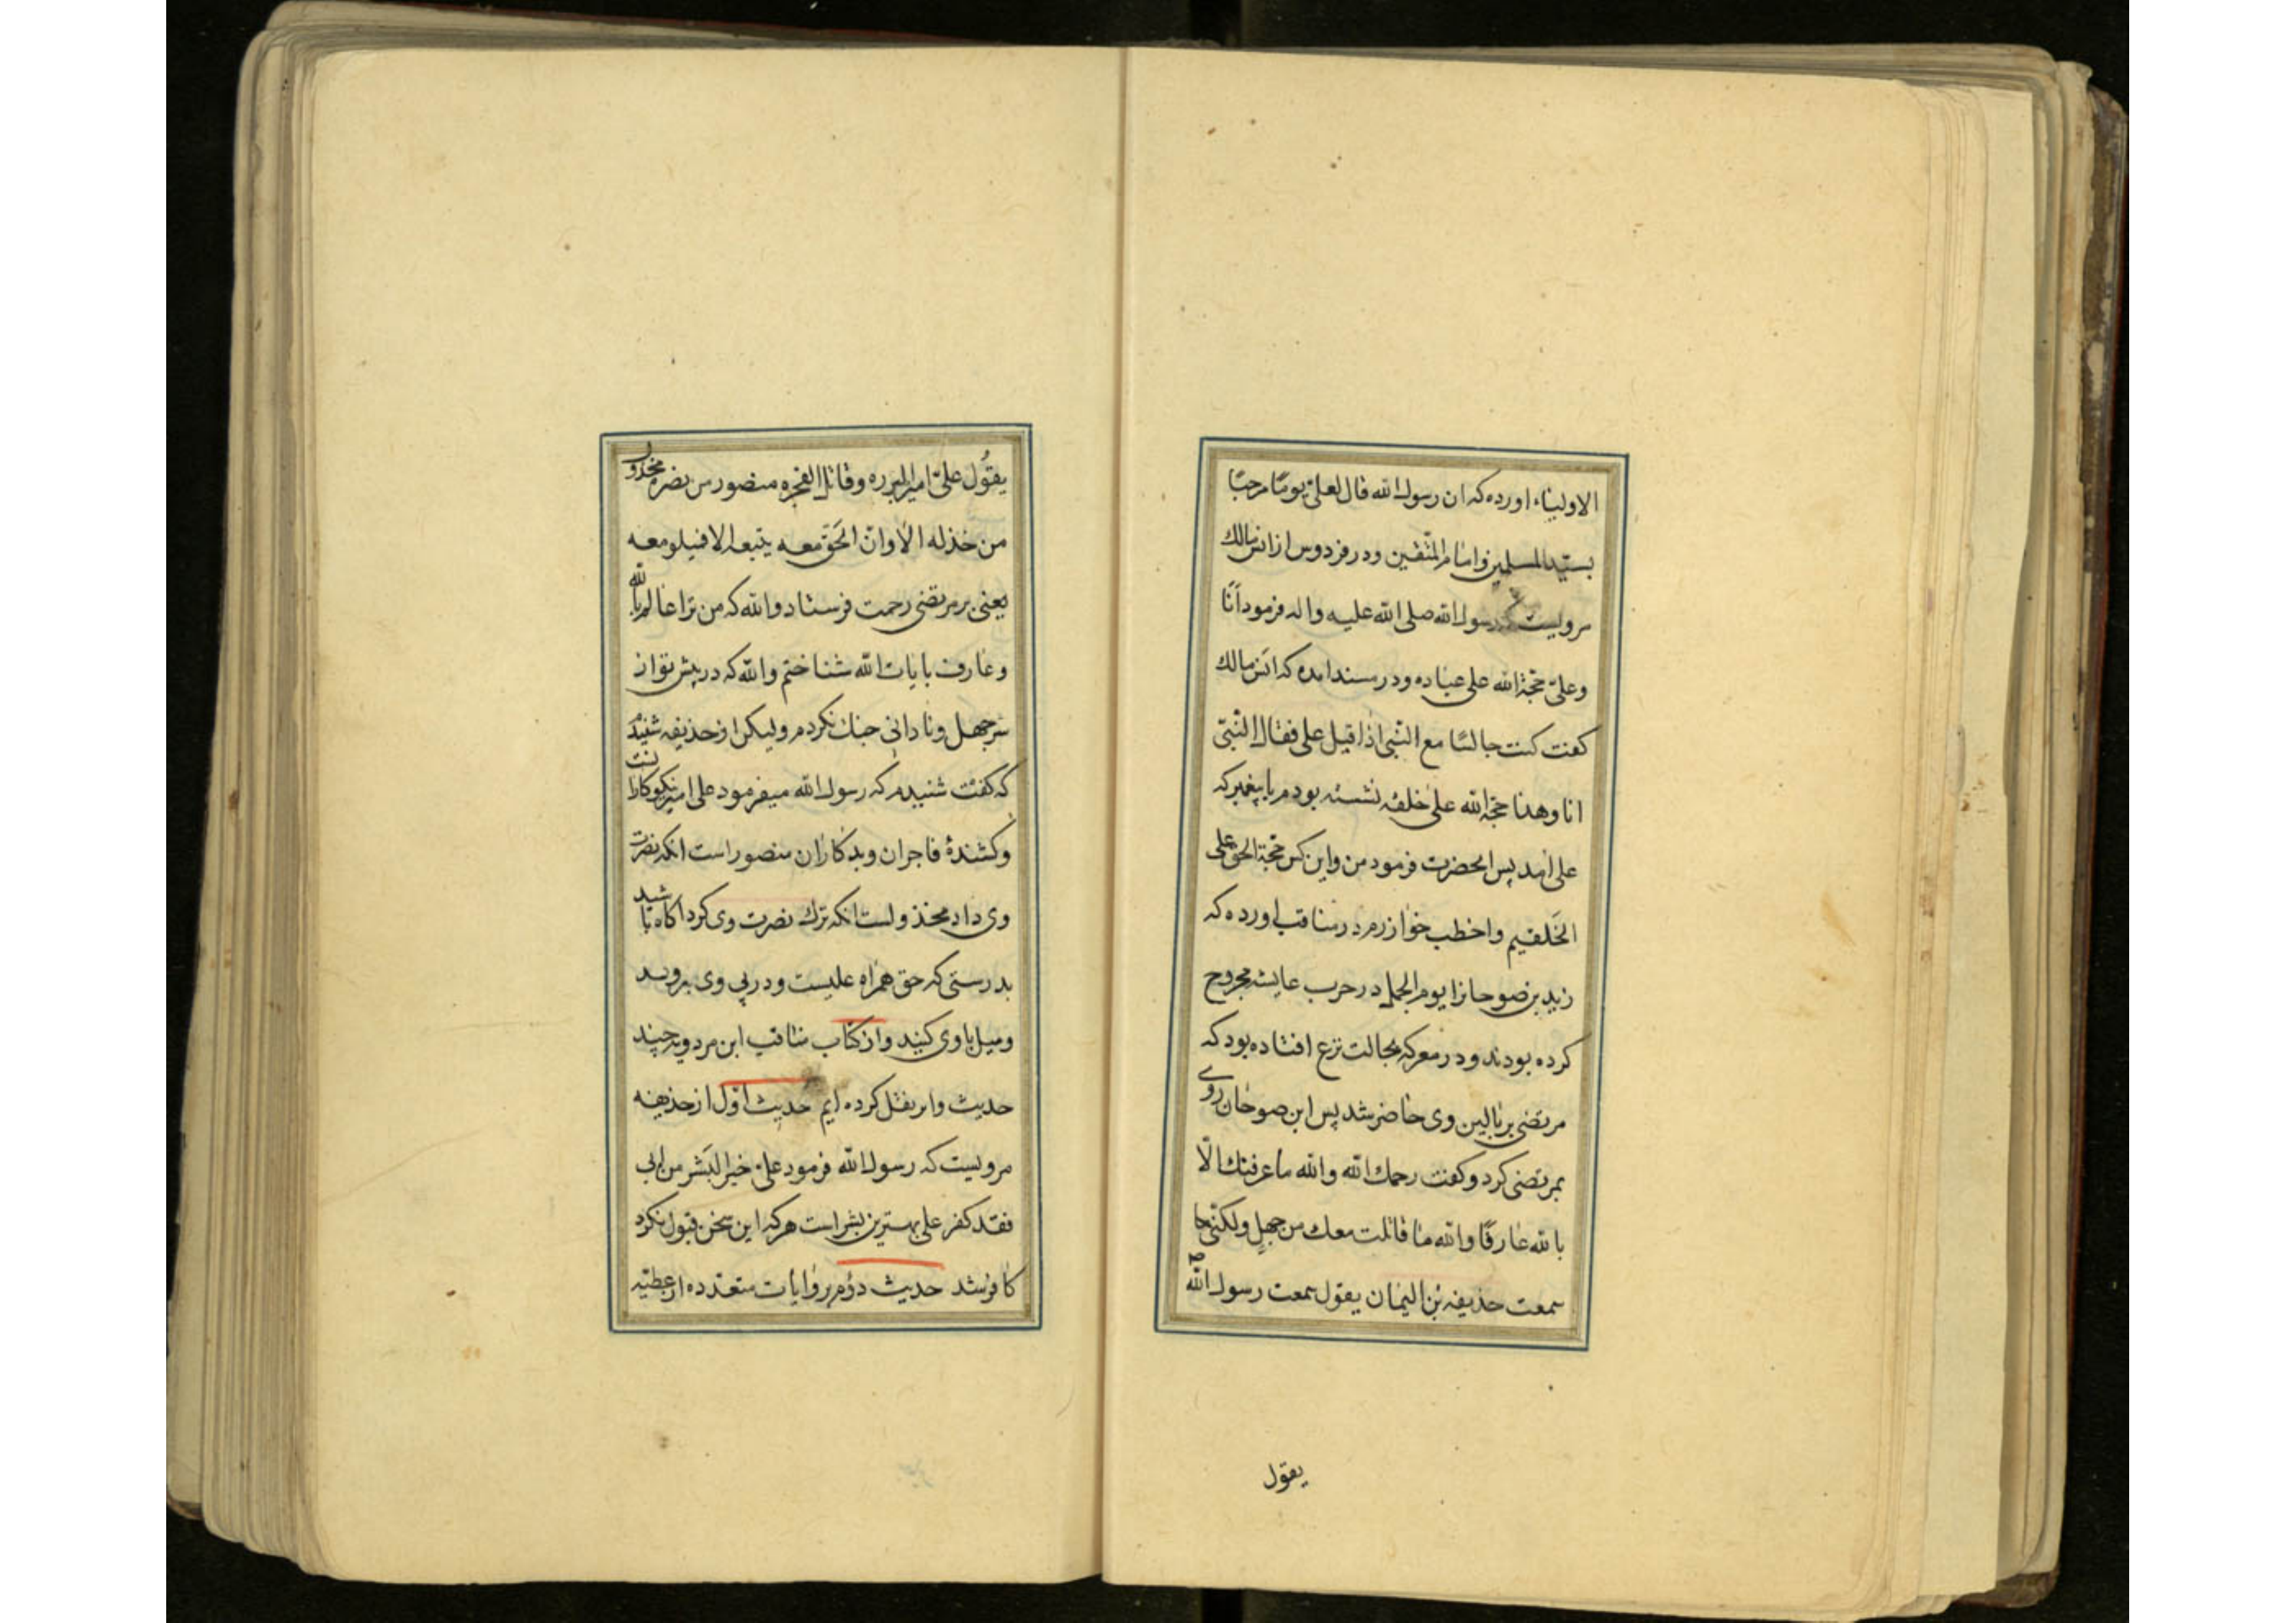 الاولیاء اورده که ان رسول الله قال لعلی یومًا مرحبًا
بسیّد المسلمین و امام المتّقین و در فردوس از انس مالك
مرویست که رسول الله صلی الله علیه واله فرمود أنا
وعلیّ حجة الله علی عباده و در مسند امده که انس مالك
کفت کنت جالسًا مع النّبی اذا قبل علی فقال النّبیّ
انا وهذا حجة الله علی خلقه نشسته بودم با پیغمبر که
علی امد پس انحضرت فرمود من و این کس حجة الحق علی
الخلقیم و اخطب خوارزم در مناقب اورده که
زید بن صوحان را یوم الجمل در حرب عایشه مجروح
کرده بودند و در معرکه بحالت نزع افتاده بود که
مرتضی بر بالین وی حاضر شد پس ابن صوحان روے
بمرتضی کرد و کفت رحمك الله والله ما عرفتك الّا
بالله عارفًا والله ما قاتلت معك من جهلٍ ولکنّی
سمعت حذیفه بن الیمان یقول سمعت رسول الله ص
یقول
یقُول علیّ امیر البرره و قاتل الفجره منصور من نصره مخذول
من خذله الا وان الحَق معه یتبعه الا فمیلو معه
یعنی بر مرتضی رحمت فرستاد و الله که من ترا عالم بالله
و عارف بایات الله شناختم و الله که در پیش تو از
سر جهل و نادانی جنك نکردم ولیکن از حذیفه شنیدم
که کفت شنیدم که رسول الله میفرمود علی امیر نیکوکارانست
و کشندهٔ فاجران و بدکاران منصور است انکه نصرت
وی داد مخذولست انکه ترك نصرت وی کرد اکاه باشید
بدرستی که حق همراه علیست و در پی وی بروید
و میل با وی کنید و از کتاب مناقب ابن مردویه چند
حدیث وا بر نقل کرده ایم حدیث اوّل از حذیفه
مرویست که رسول الله فرمود علیّ خیر البَشر من ابی
فقد کفر علی بهترین بشر است هر که این سخن قبول نکرد
کافر شد حدیث دوُم بروایات متعدده از عطیّه